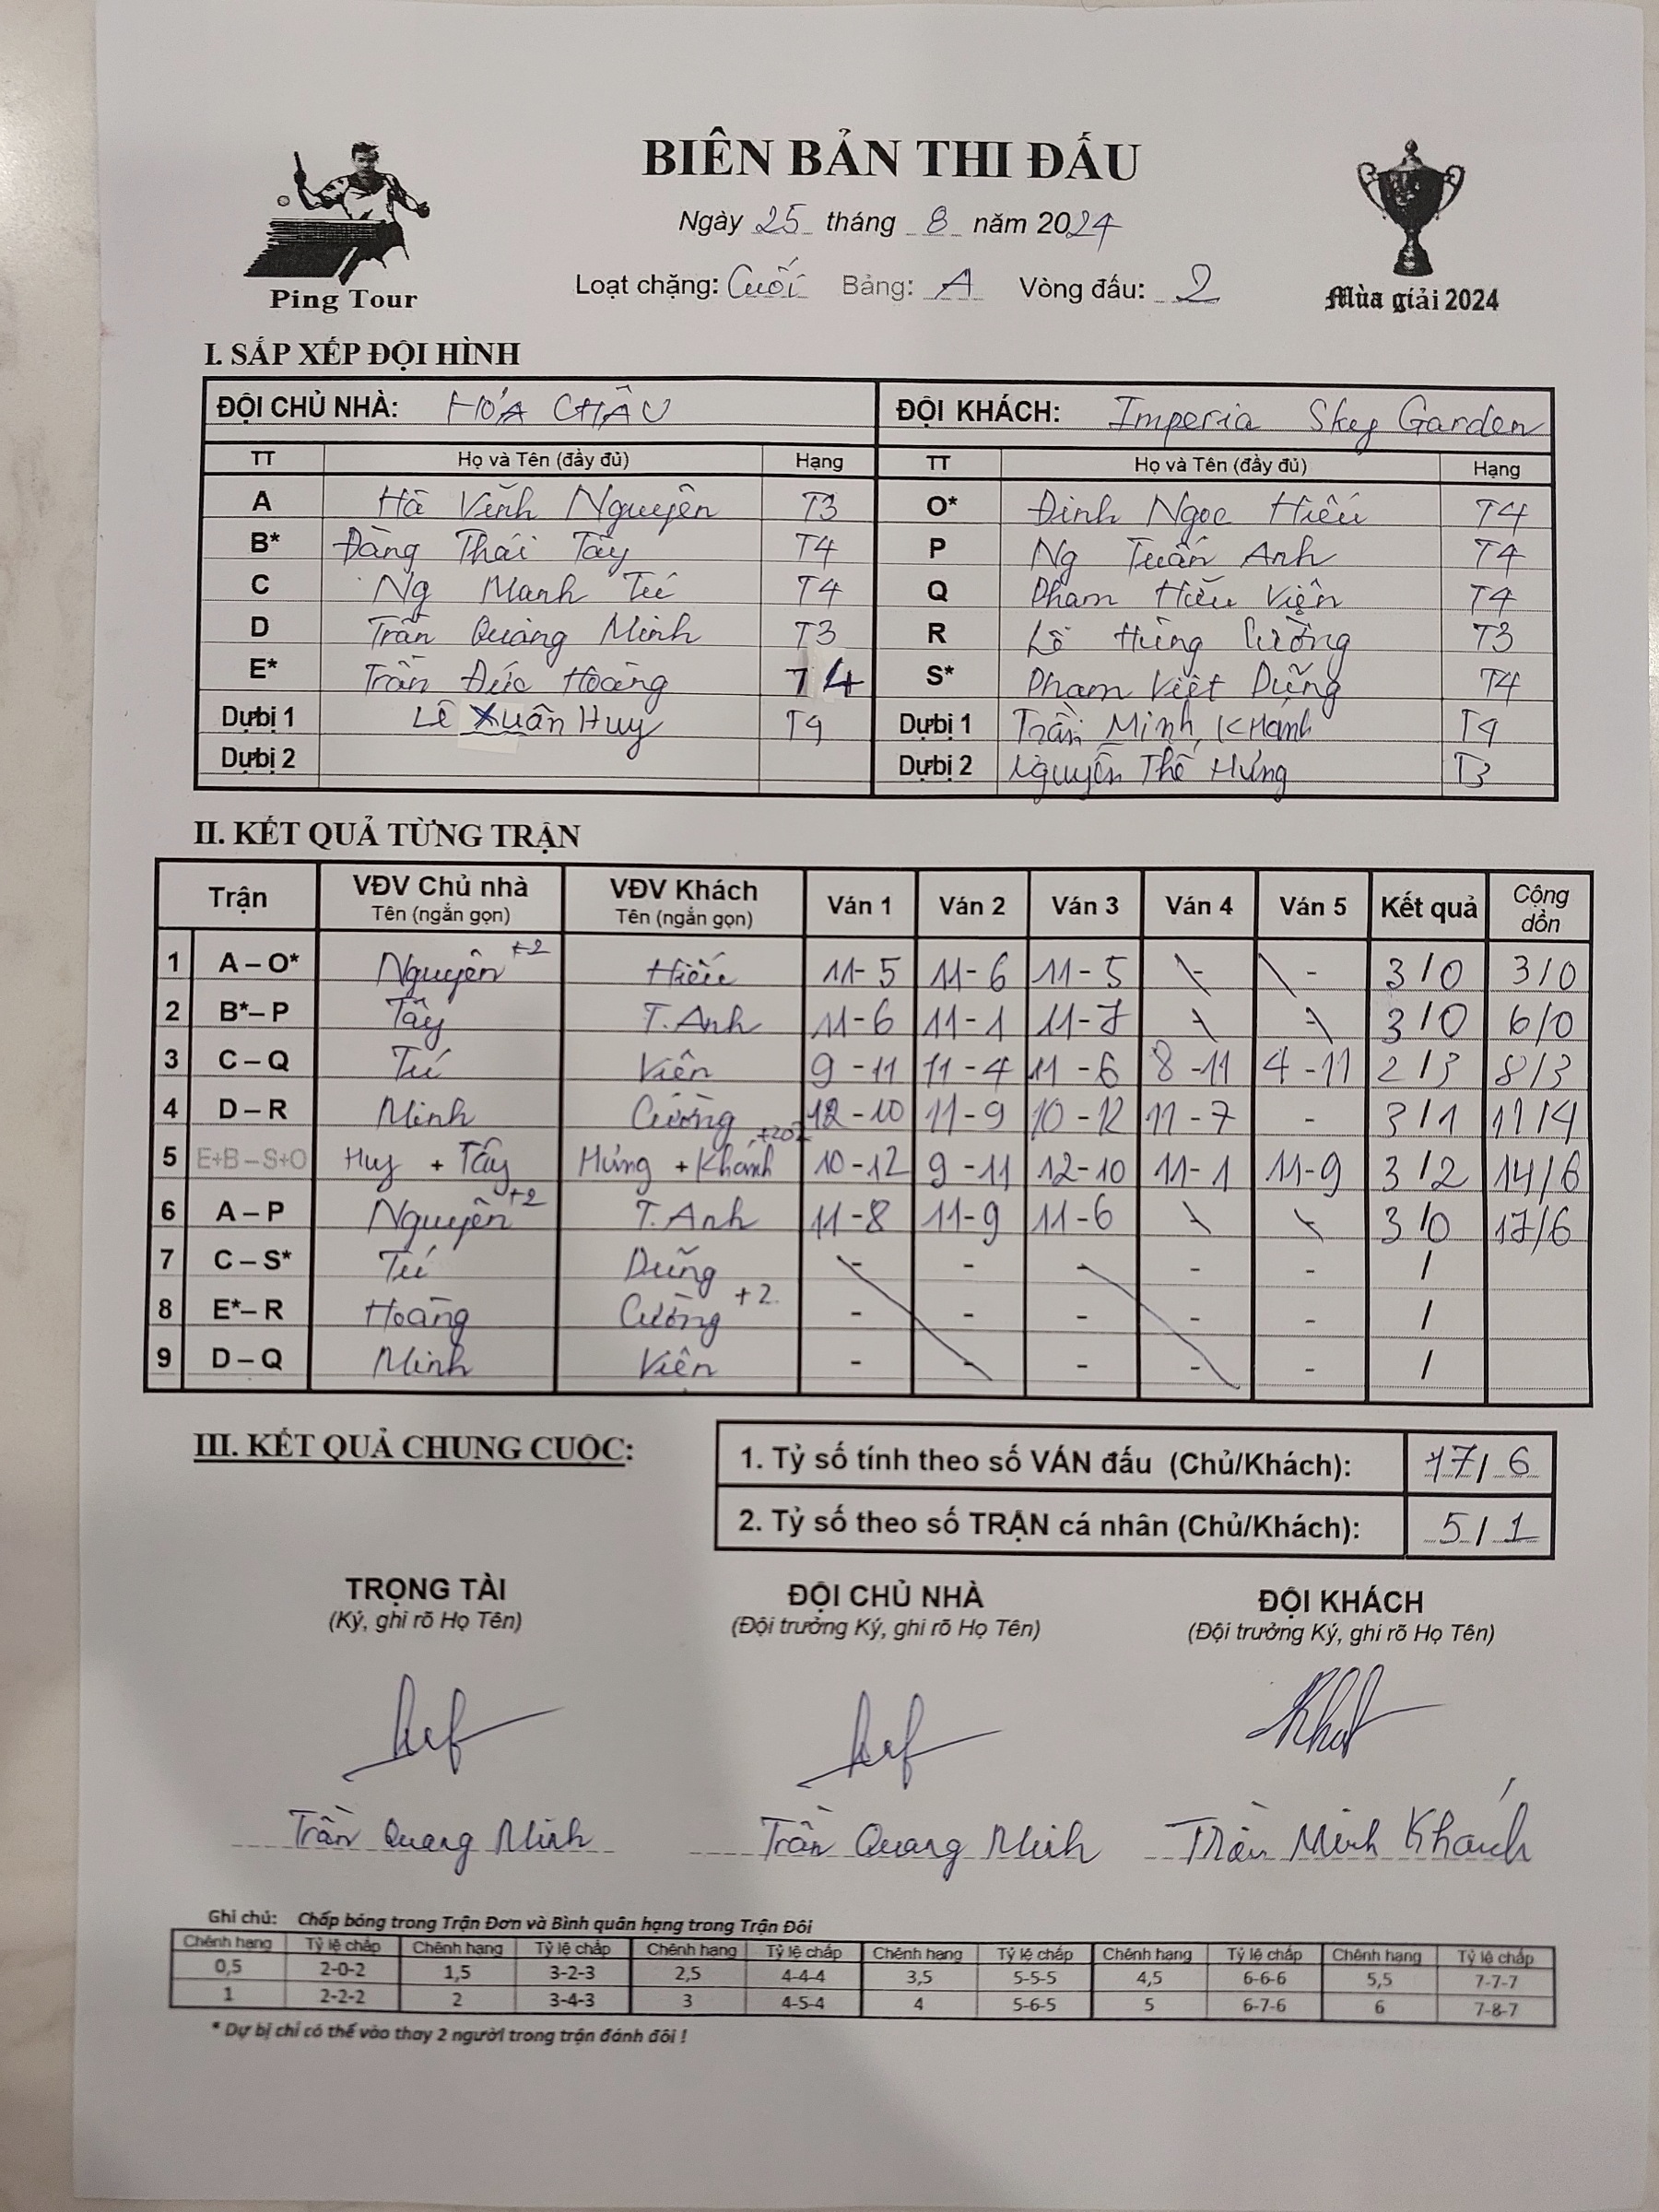 BIÊN BẢN THI ĐẤU
Ngày 25 tháng 8 năm 2024
Loạt chặng: Cuối Bảng: A Vòng đấu: 2
Ping Tour
Mùa giải 2024
I. SẮP XẾP ĐỘI HÌNH
ĐỘI CHỦ NHÀ: HÓA CHÂU ĐỘI KHÁCH: Imperia Sky Garden
TT Họ và Tên (đầy đủ) Hạng TT Họ và Tên (đầy đủ) Hạng
A Hà Vĩnh Nguyên T3 O* Đinh Ngọc Hiếu T4
B* Đàng Thái Tây T4 P Ng Tuấn Anh T4
C Ng Mạnh Tú T4 Q Phạm Hiếu Viên T4
D Trần Quang Minh T3 R Lê Hùng Cường T3
E* Trần Đức Hoàng T4 S* Phạm Việt Dũng T4
Dự bị 1 Lê Xuân Huy T4 Dự bị 1 Trần Minh Khánh T4
Dự bị 2 Dự bị 2 Nguyễn Thế Hưng T3
II. KẾT QUẢ TỪNG TRẬN
Trận VĐV Chủ nhà Tên (ngắn gọn) VĐV Khách Tên (ngắn gọn) Ván 1 Ván 2 Ván 3 Ván 4 Ván 5 Kết quả Cộng dồn
1 A – O* Nguyên +2 Hiếu 11-5 11-6 11-5 - - 3/0 3/0
2 B* – P Tây T.Anh 11-6 11-1 11-7 - - 3/0 6/0
3 C – Q Tú Viên 9-11 11-4 11-6 8-11 4-11 2/3 8/3
4 D – R Minh Cường 12-10 11-9 10-12 11-7 - 3/1 11/4
5 E+B – S+O Huy + Tây Hưng + Khánh +202 10-12 9-11 12-10 11-1 11-9 3/2 14/6
6 A – P Nguyên +2 T.Anh 11-8 11-9 11-6 - - 3/0 17/6
7 C – S* Tú Dũng - - - - - /
8 E* – R Hoàng Cường +2 - - - - - /
9 D – Q Minh Viên - - - - - /
III. KẾT QUẢ CHUNG CUỘC:
1. Tỷ số tính theo số VÁN đấu (Chủ/Khách): 17/6
2. Tỷ số theo số TRẬN cá nhân (Chủ/Khách): 5/1
TRỌNG TÀI ĐỘI CHỦ NHÀ ĐỘI KHÁCH
(Ký, ghi rõ Họ Tên) (Đội trưởng Ký, ghi rõ Họ Tên) (Đội trưởng Ký, ghi rõ Họ Tên)
Trần Quang Minh Trần Quang Minh Trần Minh Khánh
Ghi chú: Chấp bóng trong Trận Đơn và Bình quân hạng trong Trận Đôi
Chênh hạng Tỷ lệ chấp Chênh hạng Tỷ lệ chấp Chênh hạng Tỷ lệ chấp Chênh hạng Tỷ lệ chấp Chênh hạng Tỷ lệ chấp Chênh hạng Tỷ lệ chấp
0,5 2-0-2 1,5 3-2-3 2,5 4-4-4 3,5 5-5-5 4,5 6-6-6 5,5 7-7-7
1 2-2-2 2 3-4-3 3 4-5-4 4 5-6-5 5 6-7-6 6 7-8-7
* Dự bị chỉ có thể vào thay 2 người trong trận đánh đôi !